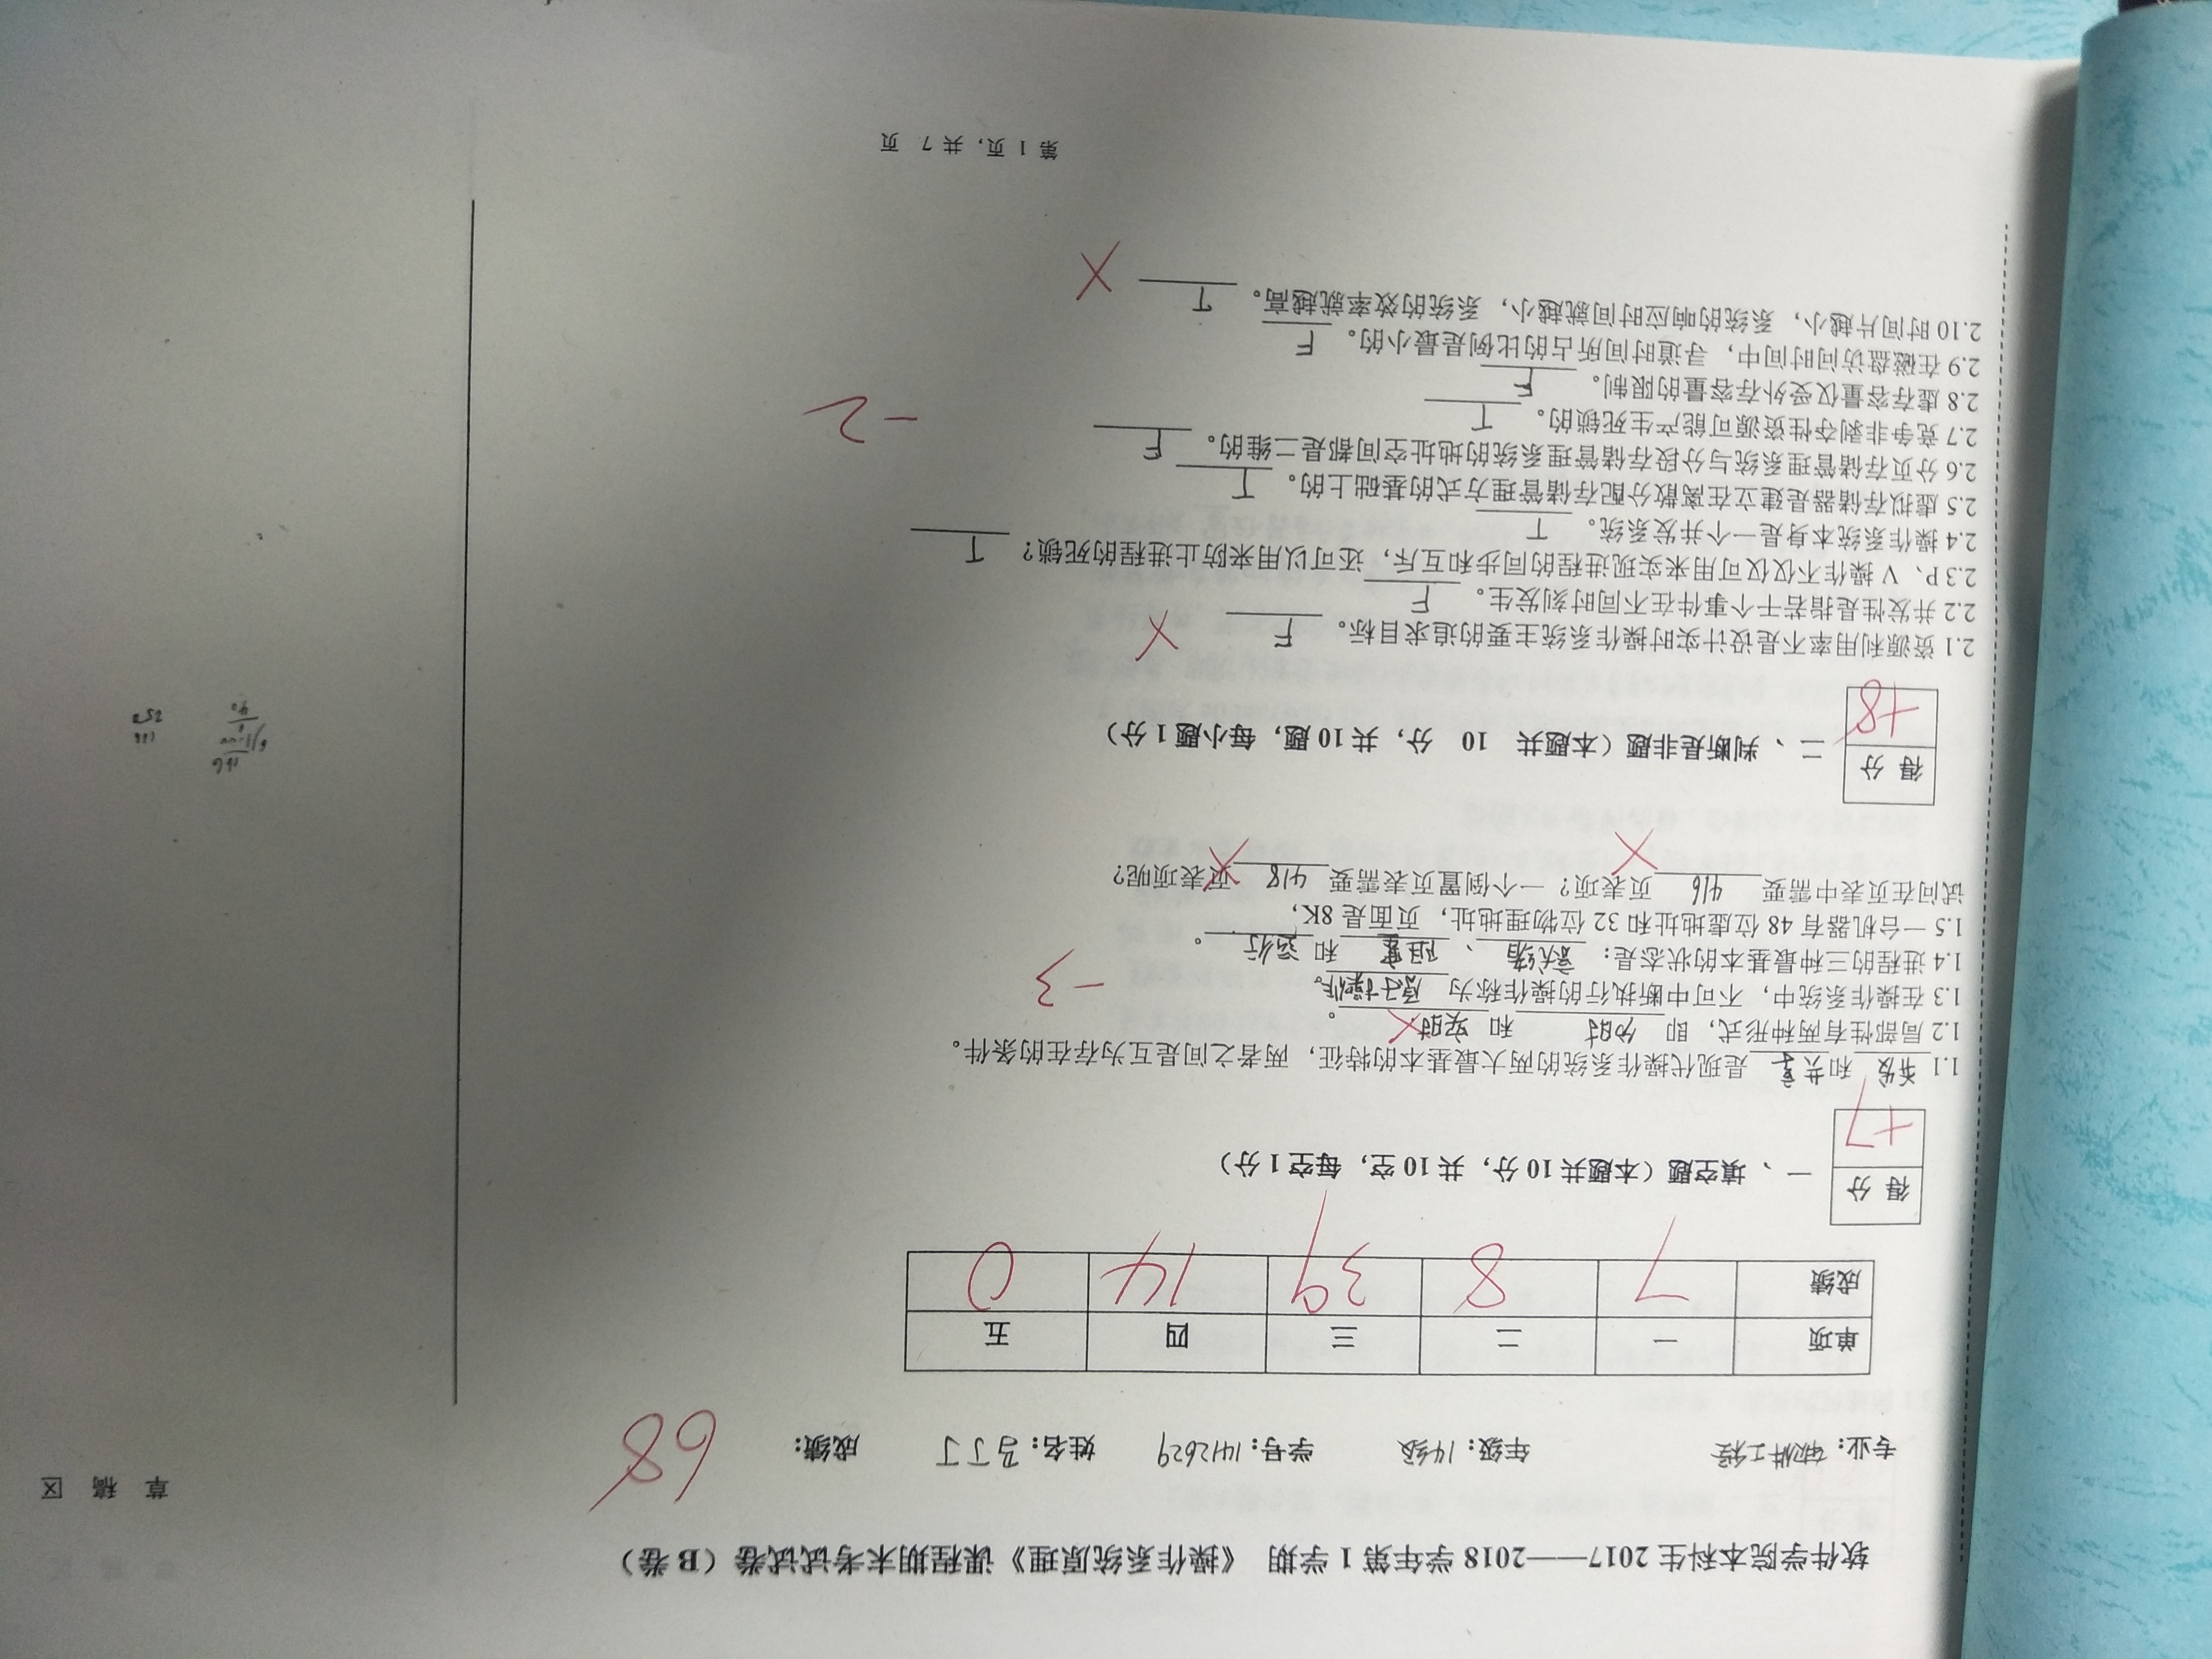 软件学院本科生 2017——2018 学年第 1 学期 《操作系统原理》课程期末考试试卷（B 卷）
草 稿 区
专业：软件工程 年级：14级 学号：1412629 姓名：马丁丁 成绩： 68
单项 一 二 三 四 五
成绩 7 8 39 14 0
得 分
+7
一 、填空题（本题共 10 分，共 10 空，每空 1 分）
1.1 并发 和 共享 是现代操作系统的两大最基本的特征，两者之间是互为存在的条件。
1.2 局部性有两种形式，即 分时 和 实时 。
1.3 在操作系统中，不可中断执行的操作称为 原子操作。
-3
1.4 进程的三种最基本的状态是： 就绪 、 阻塞 和 运行 。
1.5 一台机器有 48 位虚地址和 32 位物理地址，页面是 8K，
试问在页表中需要 416 页表项？一个倒置页表需要 418 页表项呢？
得 分
+8
二 、判断是非题（本题共 10 分，共 10 题，每小题 1 分）
2.1 资源利用率不是设计实时操作系统主要的追求目标。 F
2.2 并发性是指若干个事件在不同时刻发生。 F
2.3 P、V 操作不仅仅可用来实现进程的同步和互斥，还可以用来防止进程的死锁？ T
2.4 操作系统本身是一个并发系统。 T
2.5 虚拟存储器是建立在离散分配存储管理方式的基础上的。 T
2.6 分页存储管理系统与分段存储管理系统的地址空间都是二维的。 F
2.7 竞争非剥夺性资源可能产生死锁的。 T
-2
2.8 虚存容量仅受外存容量的限制。 F
2.9 在磁盘访问时间中，寻道时间所占的比例是最小的。 F
2.10 时间片越小，系统的响应时间就越小，系统的效率就越高。 T
第 1 页，共 7 页